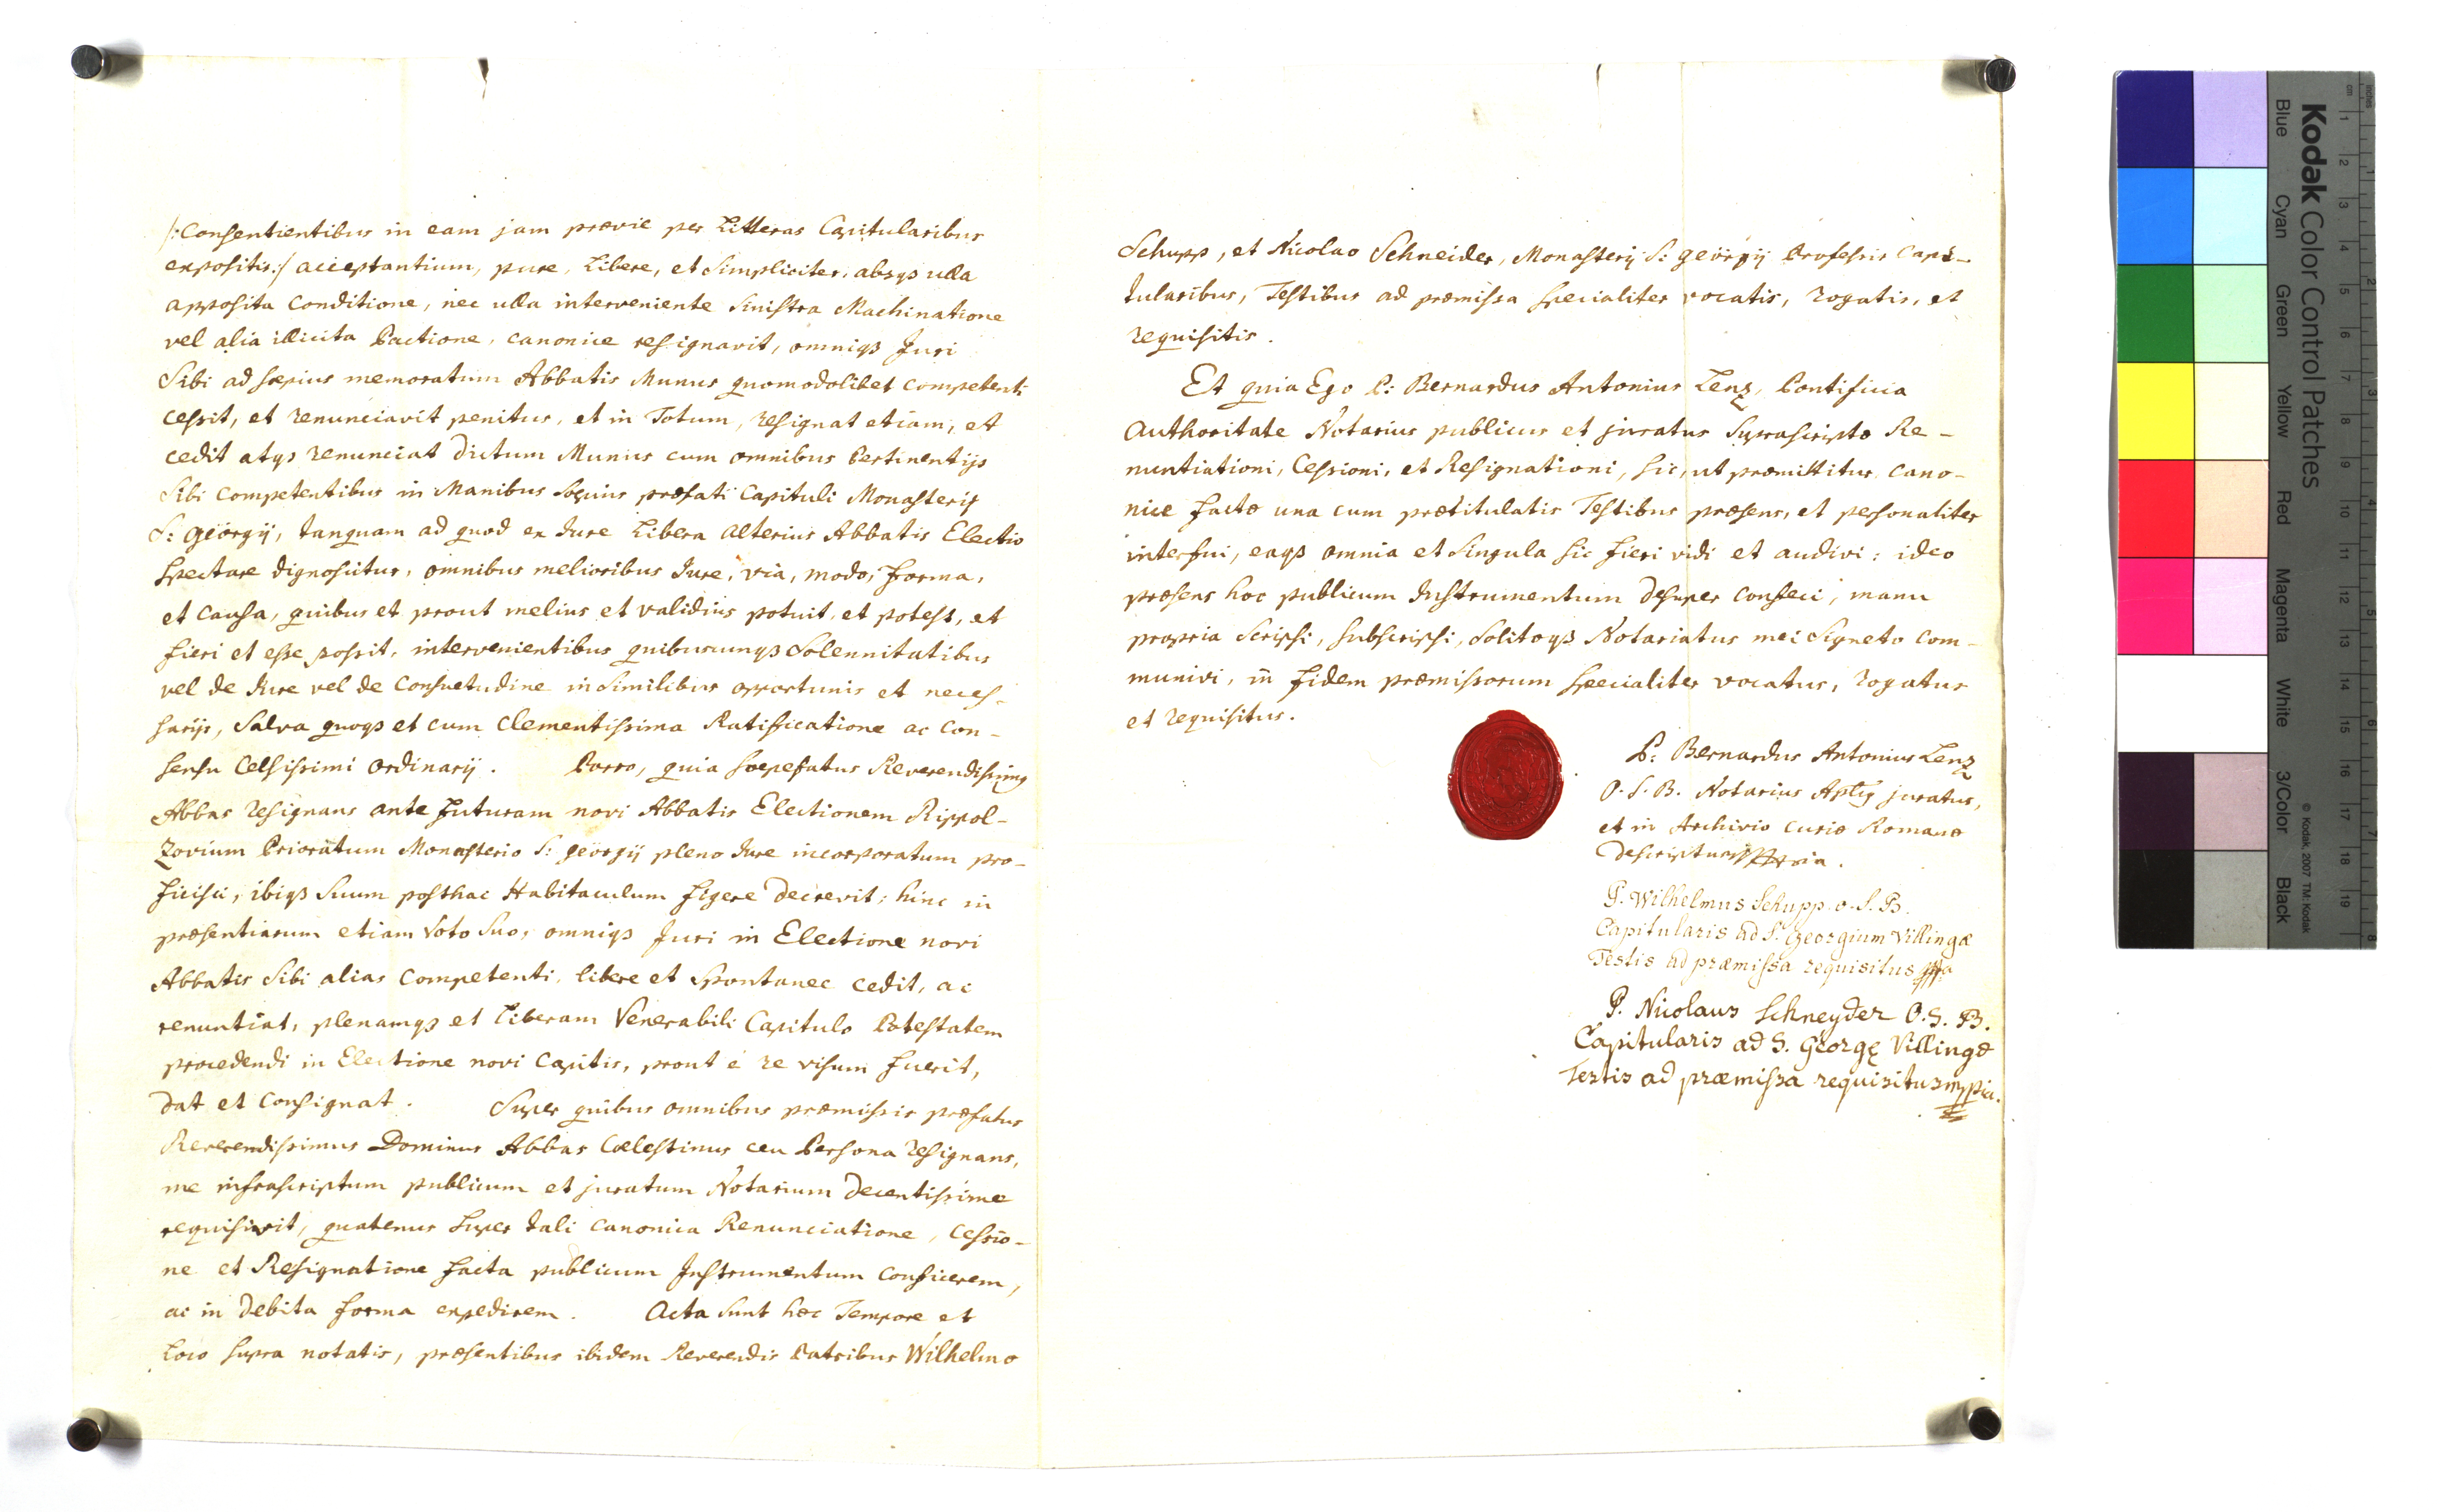 /:Consentientibus in eam jam prævie per Litteras Capitularibus
expositis:/ acceptantium, pure, Libere, et Simpliciter, absqs ulla
apposita Conditione, nec ulla interveniente Sinistra Machinatione
vel alia illicita Pactione, canonice resignavit, omniqs Juri
Sibi ad sæpius memoratum Abbatis Munus quomodolibet competenti
cessit, et renunciavit penitus, et in Totum, resignat etiam, et
cedit atqs renunciat dictum Munus cum omnibus Pertinentijs
Sibi competentibus in Manibus sæpius præfati Capituli Monasterij
S: Georgij, tanquam ad quod ex Jure Libera alterius Abbatis Electio
spectare dignoscitur, omnibus melioribus Jure, via, modo, forma,
et causa, quibus et prout melius et validius potuit, et potest, et
fieri et esse possit, intervenientibus quibuscunqs Solennitatibus
vel de Jure vel de Consuetudine in Similibus opportunis et neces-
sarijs, Salva quoqs et cum Clementissima Ratificatione ac Con-
sensu Celsissimi Ordinarij. Porro, quia sæpefatus Reverendissimg
Abbas resignans ante futuram novi Abbatis Electionem Rippol-
Zovium Prioratum Monasterio S: Georgij pleno Jure incorporatum pro-
ficisci, ibiqs Suum posthac Habitaculum figere decrevit; hinc in
præsentiarum etiam Voto Suo, omniqs Juri in Electione novi
Abbatis Sibi alias Competenti, libere et Spontanee cedit, ac
renuntiat, plenamqs et Liberam Venerabili Capitulo Potestatem
procedendi in Electione novi Capitis, prout è re visum fuerit,
dat et Consignat. Super quibus omnibus præmissis præfatus
Reverendissimus Dominus Abbas Cœlestinus ceu Persona resignans,
me infrascriptum publicum et juratum Notarium decentissime
requisivit, quatenus super tali canonica Renunciatione, Cessio-
ne et Resignatione facta publicum Instrumentum conficerem,
ac in debita forma expedirem. Acta sunt hæc Tempore et
Loco supra notatis, præsentibus ibidem Reverendis Patribus Wilhelmo
Schupp, et Nicolao Schneider, Monasterij S: Georgij Professis Capi-
tularibus, Testibus ad præmissa specialiter vocatis, rogatis, et
requisitis.
Et quia Ego P: Bernardus Antonius Lenz, Pontificia
Authoritate Notarius publicus et juratus Suprascriptæ Re-
nuntiationi, Cessioni, et Resignationi, sic, ut præmittitur, cano-
nice factæ una cum prætitulatis Testibus præsens, et personaliter
interfui, eaqs omnia et Singula sic fieri vidi et audivi: ideo
præsens hoc publicum Instrumentum desuper confeci, manu
propria Scripsi, subscripsi, Solitoqs Notariatus mei Signeto com-
munivi, in fidem præmissorum specialiter vocatus, rogatus
et requisitus.
P: Bernardus Antonius Lenz
O. S. B. Notarius Aplig juratus,
et in Archivio Curiæ Romanæ
descriptus mppria.
P. Wilhelmus Schupp. O. S. B.
Capitularis ad S. Georgium Villingæ
Testis ad præmissa requisitus mppa
P. Nicolaus Schneyder O. S. B.
Capitularis ad S. Georgę Villingæ
Testis ad præmissa requisitus mppia.
Kodak Color Control Patches
Blue Cyan Green Yellow Red Magenta White 3/Color Black
© Kodak, 2007 TM: Kodak
cm 1 2 3 4 5 6 7 8 9 10 11 12 13 14 15 16 17 18 19
inches 1 2 3 4 5 6 7 8